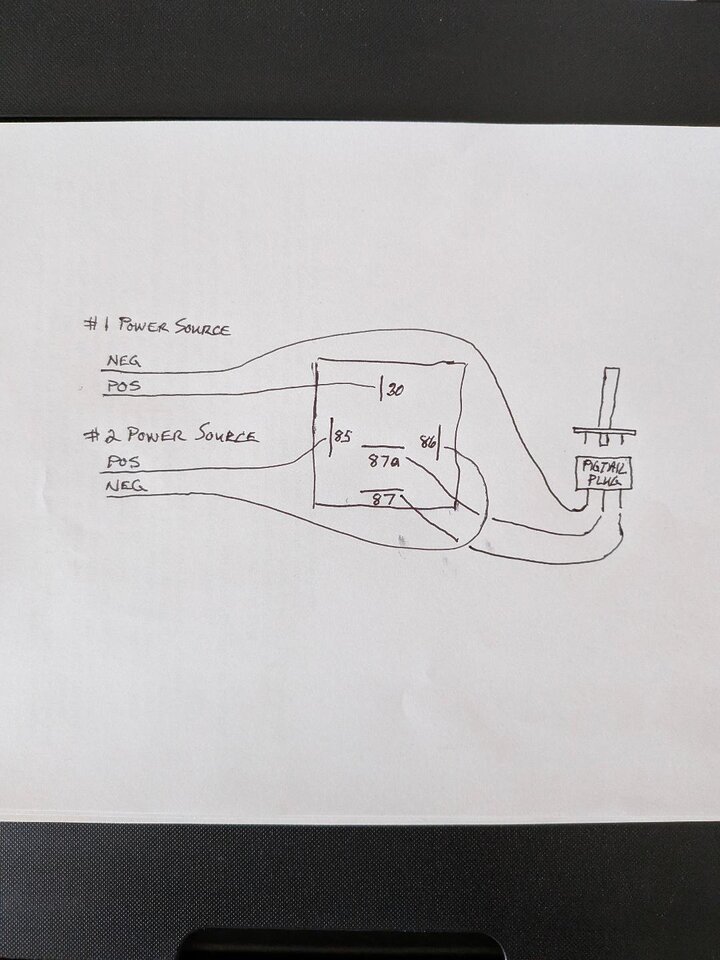 #1 POWER SOURCE
NEG
POS
30
#2 POWER SOURCE
85
86
POS
87a
NEG
87
PIGTAIL
PLUG